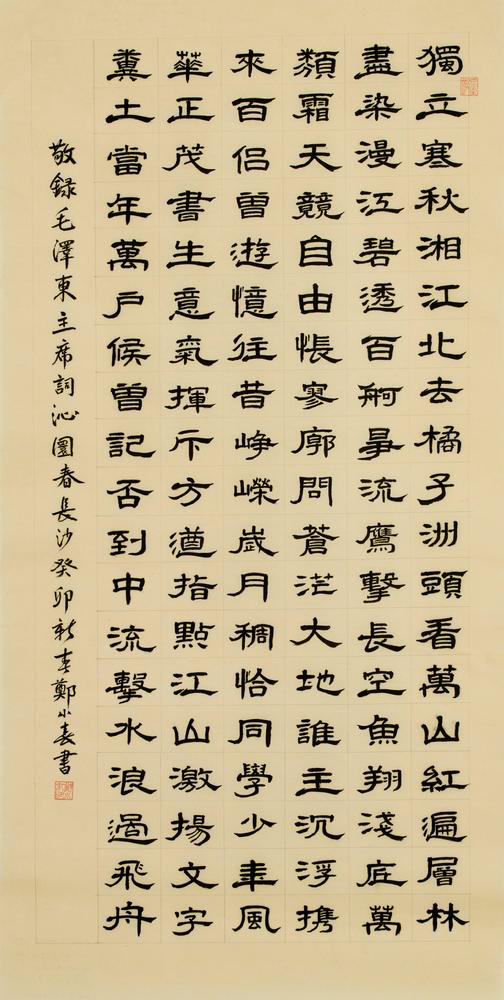 獨立寒秋湘江北去橘子洲頭看萬山紅遍層林
盡染漫江碧透百舸爭流鷹擊長空魚翔淺底萬
類霜天競自由悵寥廓問蒼茫大地誰主沉浮携
來百侶曾遊憶往昔崢嶸歲月稠恰同學少年風
華正茂書生意氣揮斥方遒指點江山激揚文字
糞土當年萬戶候曾記否到中流擊水浪遏飛舟
敬録毛澤東主席詞沁園春長沙癸卯新春鄭小書